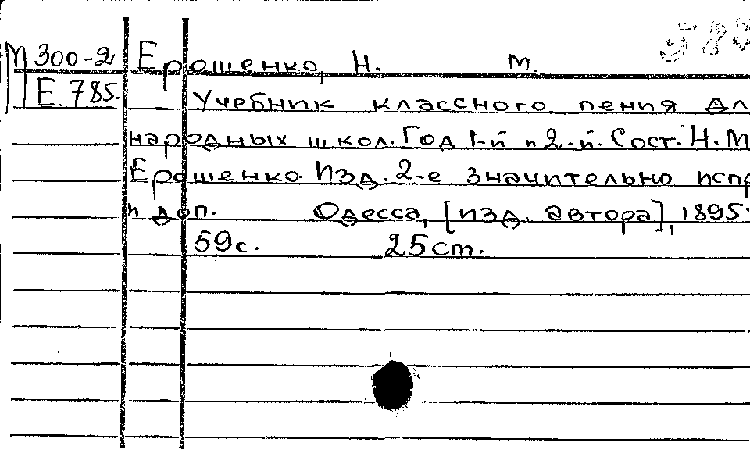 М 300-2 Ерошенко, Н. М.
Е 785. Учебник классного пения дл
народных школ. Год 1-й и 2-й. Сост. Н. М
Ерошенко. Изд. 2-е значительно испр
и доп. Одесса, [изд. автора], 1895.
59с. 25 cm.